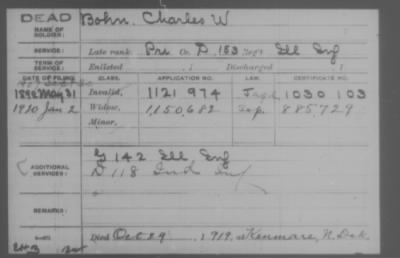 DEAD Bohn, Charles W
NAME OF SOLDIER:
SERVICE: Late rank Pri Co. D, 153 Reg't Ill Inf
TERM OF SERVICE: Enlisted , 1 Discharged , 1
DATE OF FILING. CLASS. APPLICATION NO. LAW. CERTIFICATE NO.
1892 May 31 Invalid, 1121 974 1030 103
1920 Jan 2 Widow, 1,150,682 885,729
Minor,
G 142 Ill Inf
ADDITIONAL SERVICES: D 118 Ind Inf
REMARKS:
Died Oct 29, 1919, at Kenmare, N. Dak.